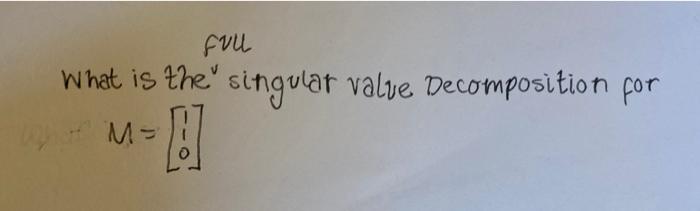 What is the full singular value Decomposition for
M = [1 1 0]